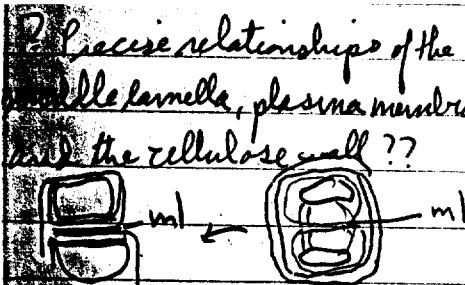 ? Precise relationships of the
middle lamella, plasma membra
and the cellulose wall ??
ml
ml